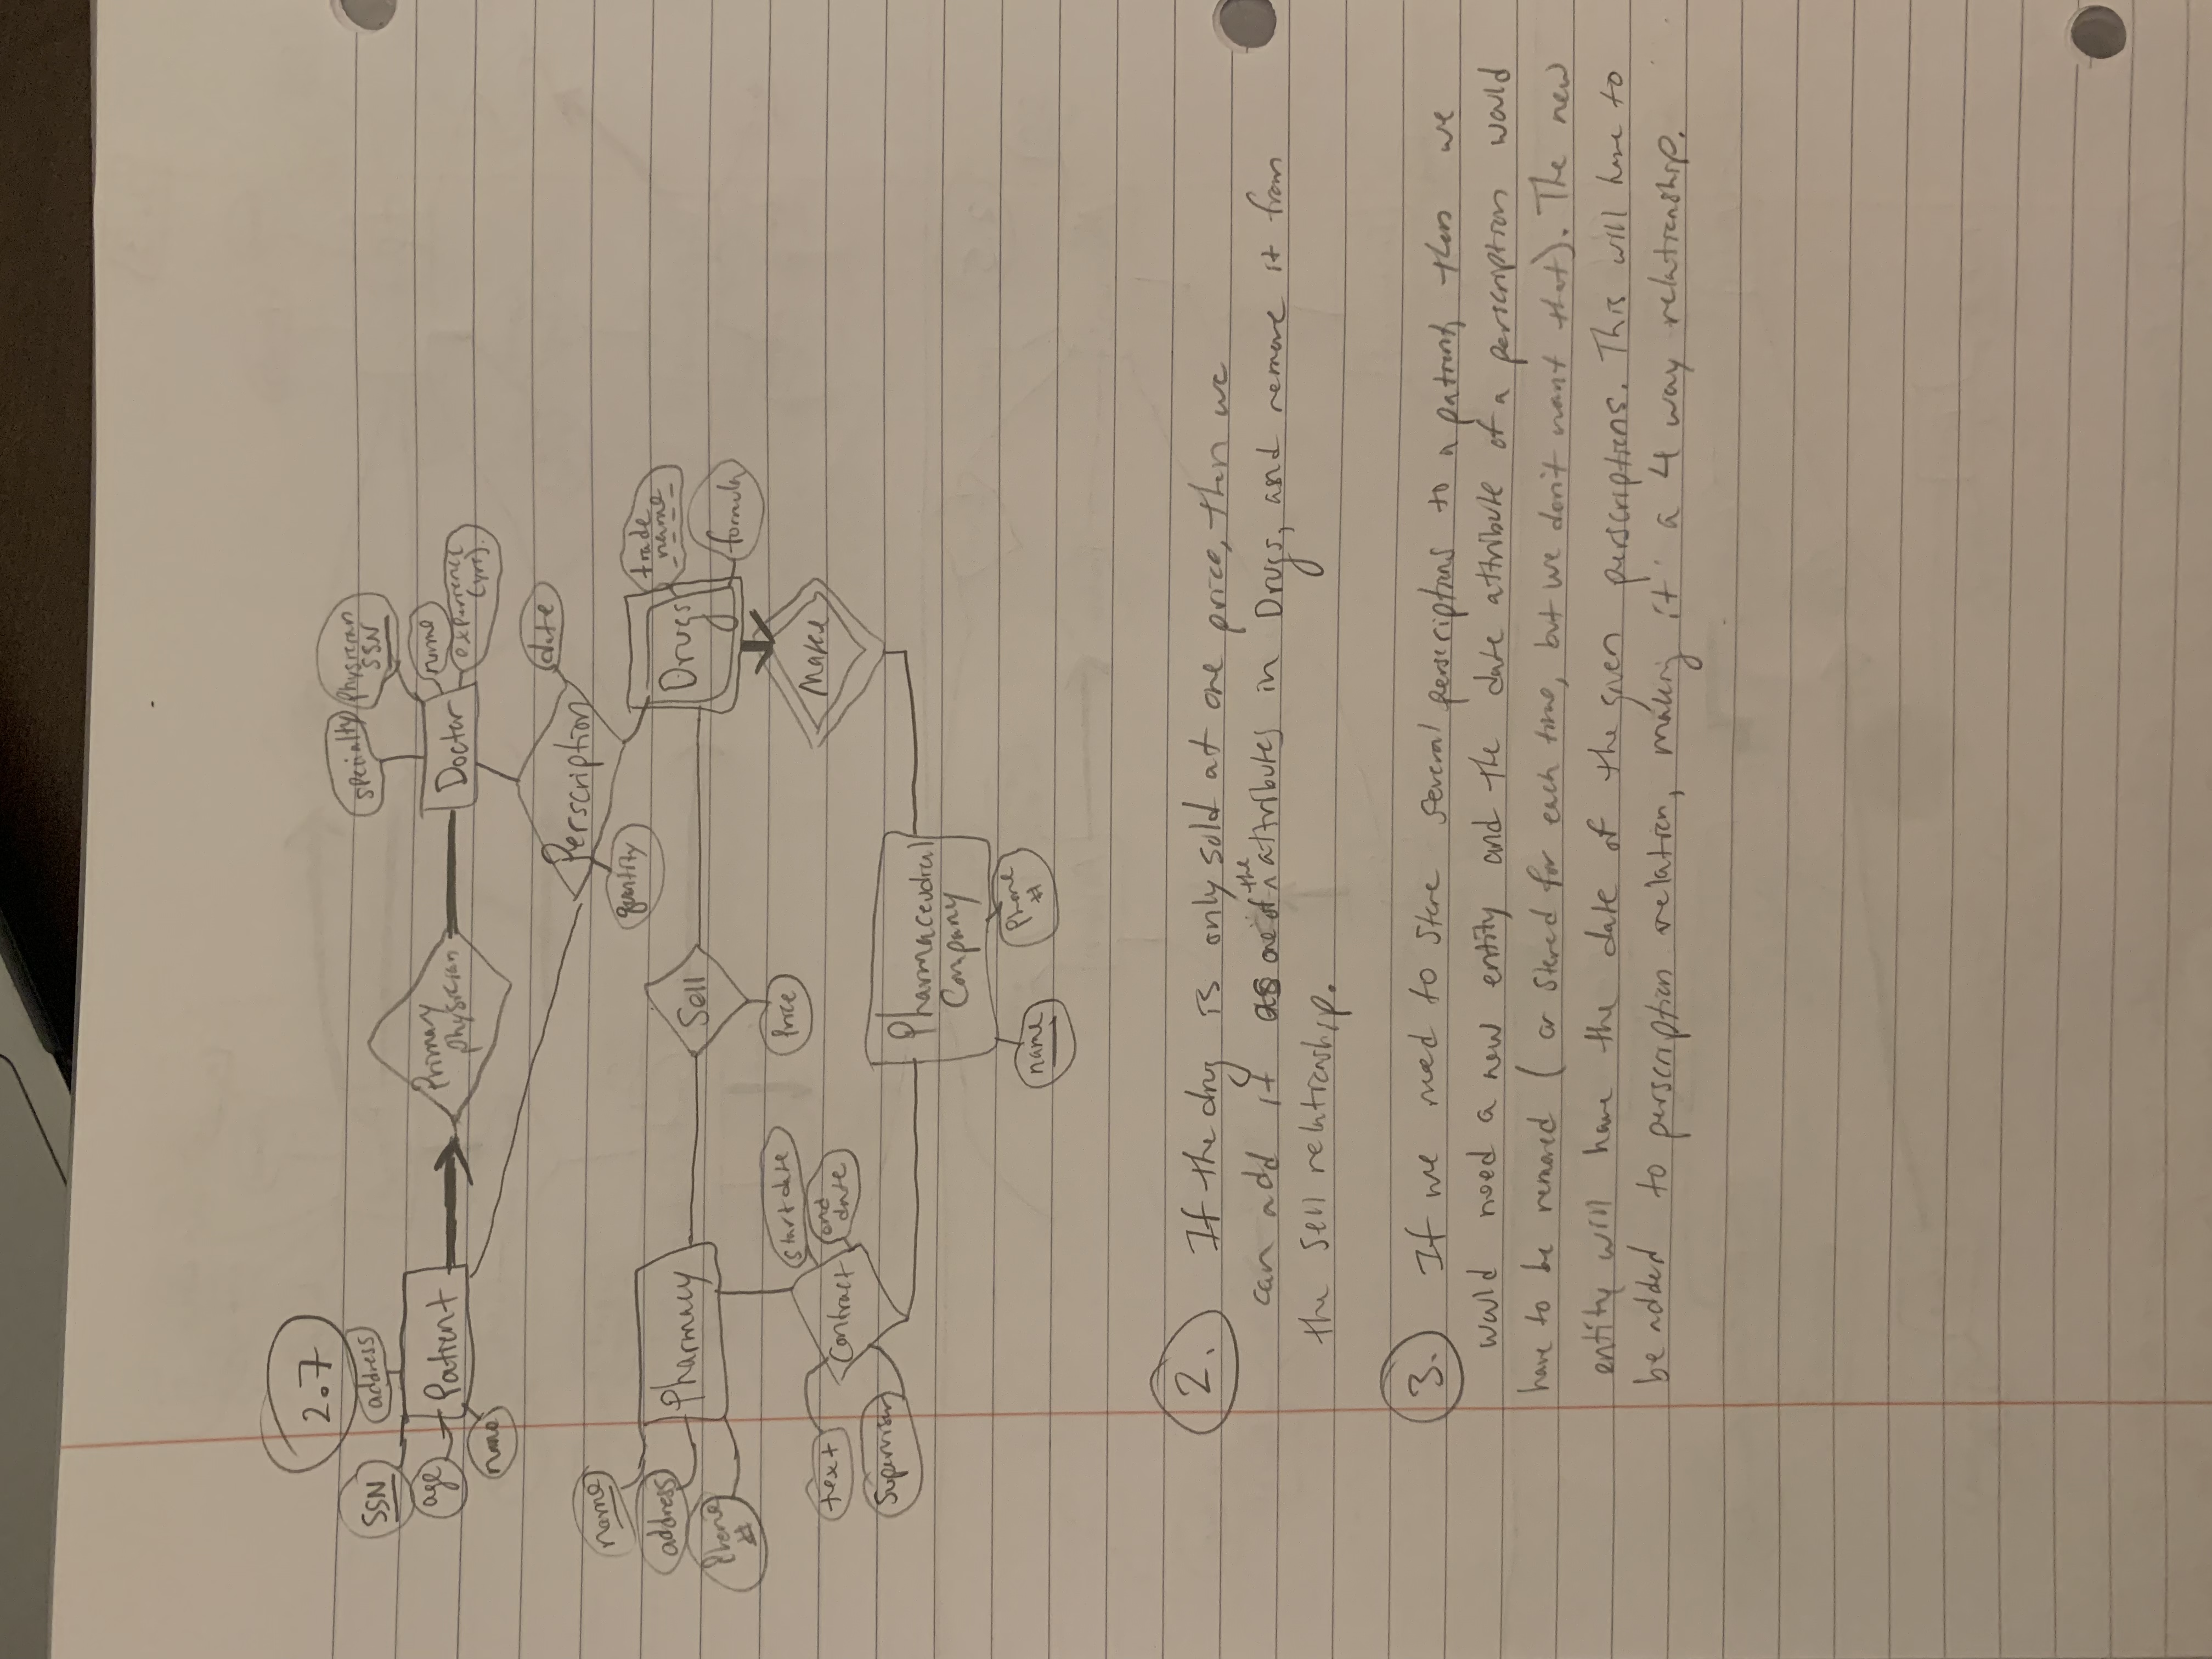 2.7
SSN
address
age
name
Patient
Primary
physician
specialty
physician
SSN
name
experience
(yrs).
Doctor
date
Perscription
quantity
name
address
Phone
#
Pharmacy
Sell
Price
Drugs
trade
name
formula
start date
end
date
text
Contract
Supervisor
Pharmaceudical
Company
name
Phone
#
2. If the drug is only sold at one price, then we
can add it as one of the attributes in Drugs, and remove it from
the sell relationship.
3. If we need to store several perscriptions to a patient, then we
would need a new entity and the date attribute of a perscription would
have to be removed (or stored for each time, but we don't want that). The new
entity will have the date of the given perscriptions. This will have to
be added to perscription relation, making it a 4 way relationship.